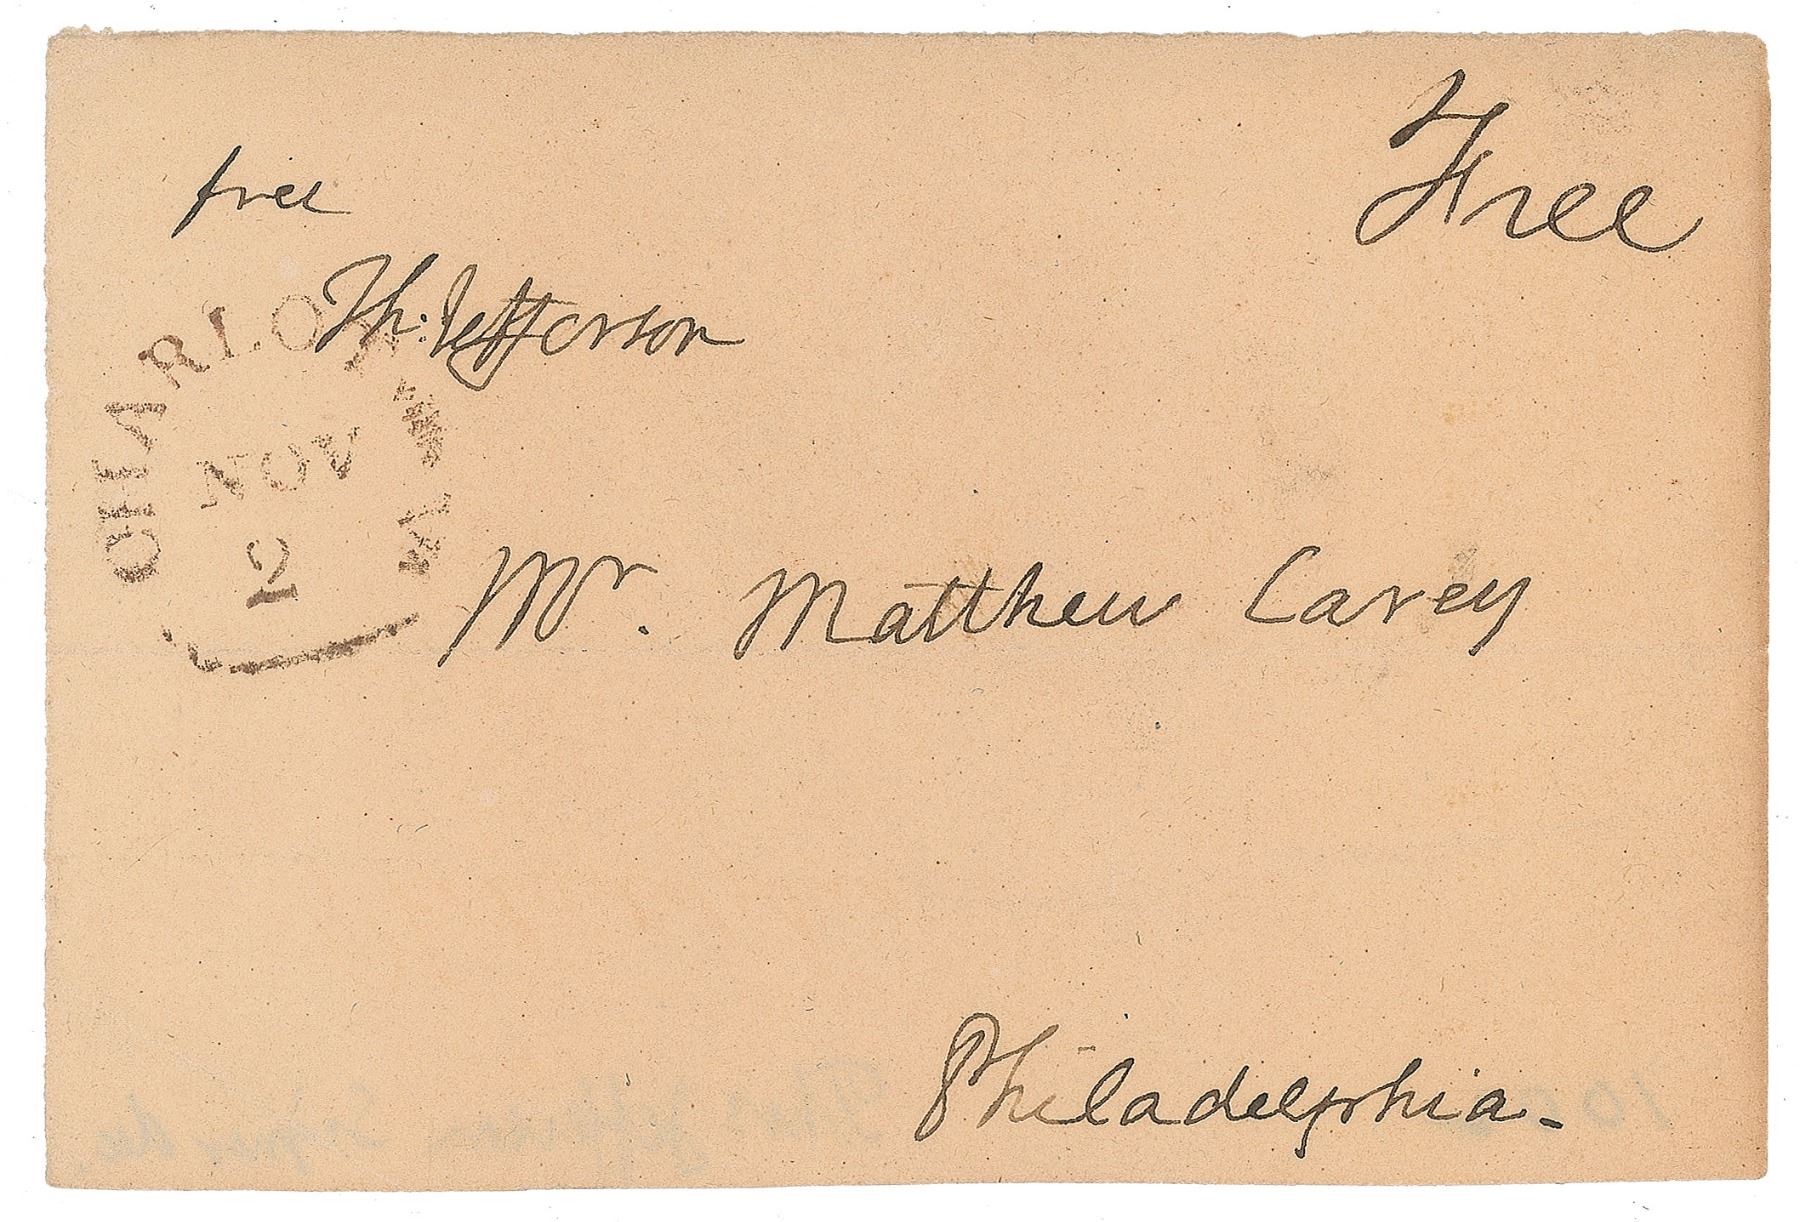 Free
free
Th: Jefferson
CHARLOT
VA
NOV
12
Mr. Matthew Carey
Philadelphia.